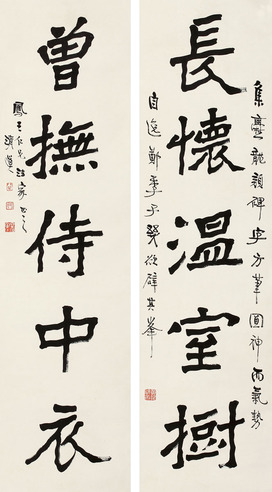 集爨龍顏碑字方筆圓神而氣勢
長懷溫室樹
自逸鄭季子欲其峯
曾撫侍中衣
仁兄法家